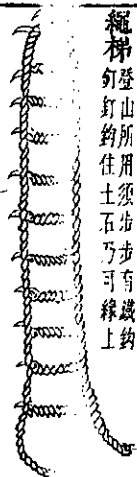 繩梯
登山所用須步步有鐵鈎
釘釘鈎住土石乃可緣上